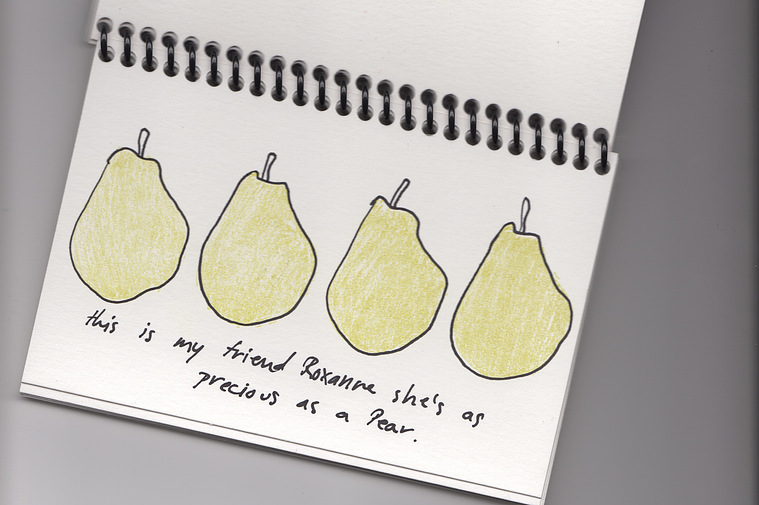 this is my friend Roxanne she's as
precious as a Pear.